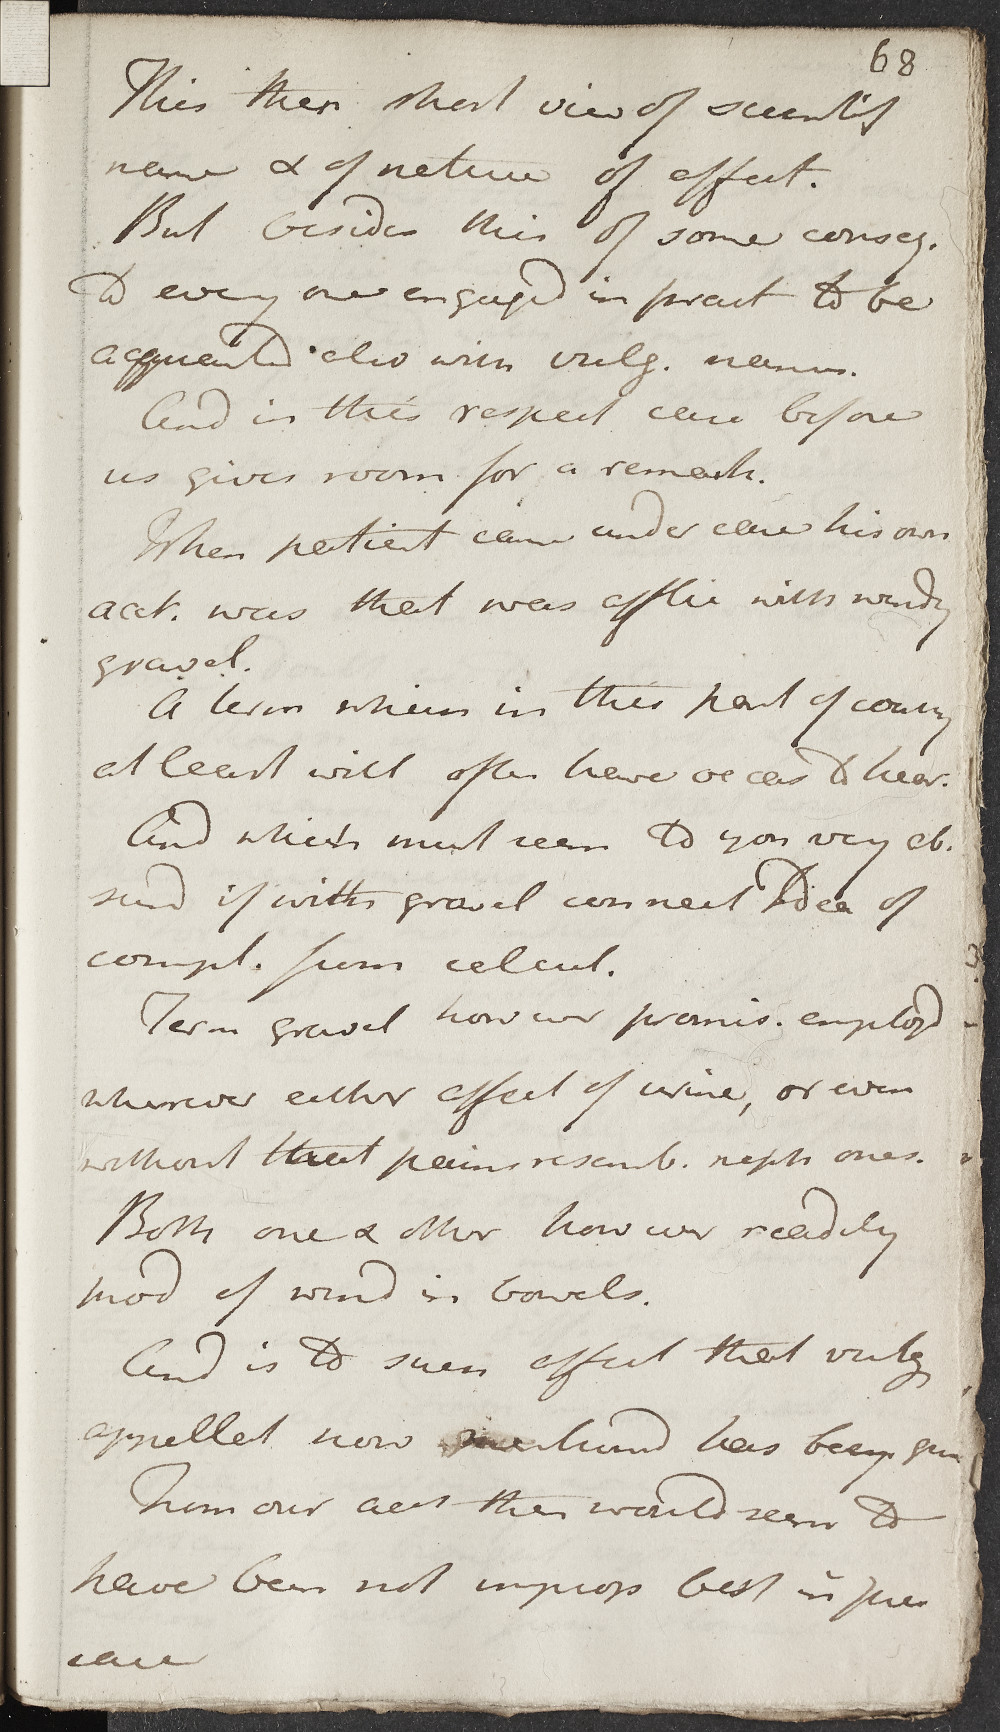 68
This then short view of scientif
name & of nature of affect.
But besides this of some conseq.
to every one engaged in pract to be
acquainted also with vulg. names.
And in this respect case before
us gives room for a remark.
When patient came under care his own
acct. was that was afflic with windy
gravel.
A term which in this part of country
at least will often have occas to hear.
And which must seem to you very ab-
surd if with gravel connect Idea of
compl. from calcul.
Term gravel however promis. employd
wherever either affect of urine, or even
without that pains resemb. neph ones.
Both one & other however readily
prod of wind in bowels.
And is to such affect that vulg
appellat now mentiond has been giv
From our acct then would seem to
have been not improp best in pres
case